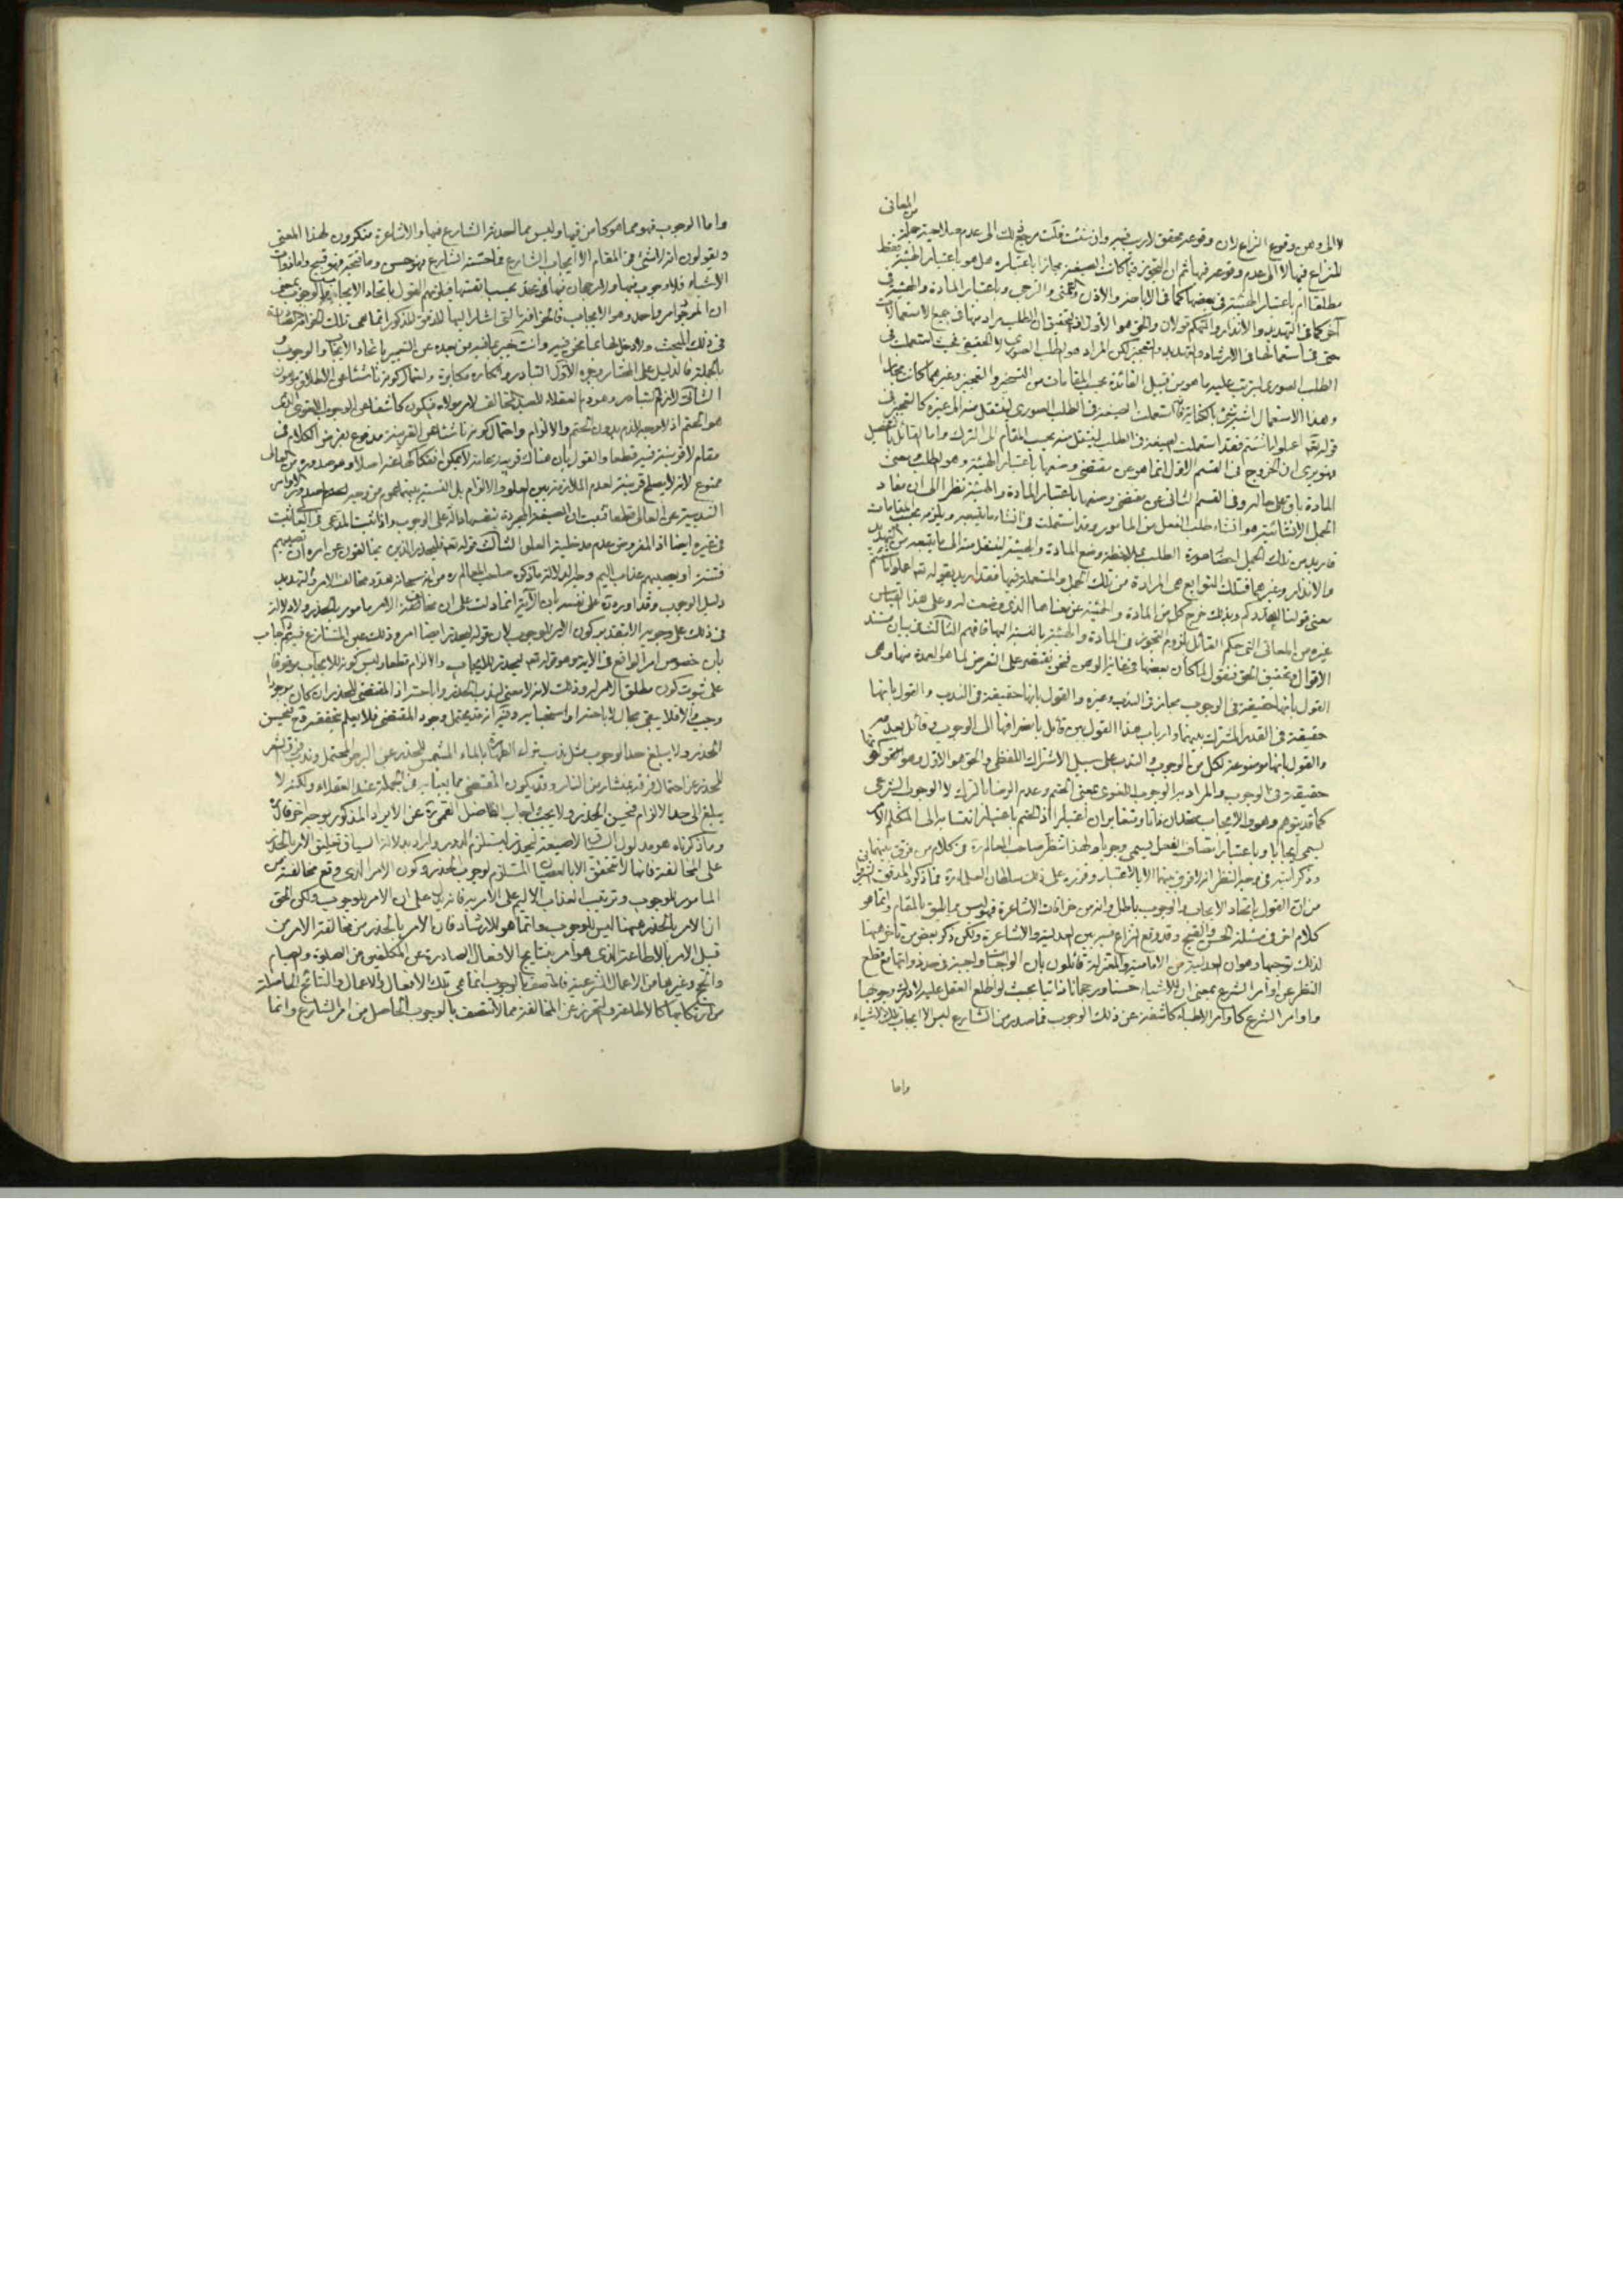 من المعانى
لا الى وهن وقوع النزاع لان وقوعه محقق لا ريب فيه وان شئت قلت مرجع ذلك الى عدم صلاحية جملة
للنزاع فيها لا الى عدم وقوعه فيها ثم ان التجوز فيما كانت الصيغة مجازا باعتباره هل هو باعتبار الهيئة فقط
مطلقا ام باعتبار الهيئة فى بعضها كما فى الاباحة والاذن والتمنى والترجى وباعتبار المادة والهيئة فى
آخر كما فى التهديد والانذار والتهكم قولان والحق هو الأول اذ التحقيق ان الطلب مراد منها فى جميع الاستعمالات
حتى فى استعمالها فى الارشاد والتهديد والتعجيز لكن المراد هو الطلب الصورى لا الحقيقى بحيث استعملت فى
الطلب الصورى ليترتب عليه ما هو من قبيل الفائدة بحسب المقامات من التسخير والتعجيز وغيرهما كانت مجازا
وهذا الاستعمال اشبه شئ بالكناية استعملت الصيغة فى الطلب الصورى لينتقل منه الى غيره كالتعجيز فى
قوله تعالى اعملوا ما شئتم فقد استعملت الصيغة فى الطلب لينتقل منه بحسب المقام الى الترك واما القائل بالتفصيل
فهو يرى ان الخروج فى القسم الاول انما هو عن مقتضى وضعها باعتبار الهيئة وهو الطلب ومعنى
المادة باق على حاله وفى القسم الثانى عن مقتضى وضعها باعتبار المادة والهيئة نظرا الى ان مفاد
الجمل الانشائية هو انشاء طلب الفعل من المامور وقد استعملت فى انشاء ما يتبعه ويلزمه بحسب المقامات
فاريد من تلك الجمل احضار صورة الطلب بملاحظة وضع المادة والهيئة لينتقل منه الى ما يتبعه من التهديد
والانذار وغيرهما فتلك التوابع هى المرادة من تلك الجمل والمستعملة فيها فقد اريد بقوله تعالى اعملوا ما شئتم
معنى قولنا اهددكم وبذلك خرج كل من المادة والهيئة عن معناهما الذى وضعت له وعلى هذا القياس
غيره من المعانى التى حكم القائل بلزوم التجوز فى المادة والهيئة بالنسبة اليها فافهم الثالث فى بيان مستند
الاقوال وتحقيق الحق فنقول لما كان بعضها فى غاية الوهن فنحن نقتصر على التعرض لما هو العمدة منها وهى
القول بانها حقيقة فى الوجوب مجاز فى الندب وغيره والقول بانها حقيقة فى الندب والقول بانها
حقيقة فى القدر المشترك بينهما وارباب هذا القول بين قائل بانصرافها الى الوجوب وقائل بعدمه
والقول بانها موضوعة لكل من الوجوب والندب على سبيل الاشتراك اللفظى والحق هو الاول وهو
حقيقة فى الوجوب والمراد به الوجوب اللغوى بمعنى الحتم وعدم الرضا بالترك لا الوجوب الشرعى
كما قد يتوهم وهو والايجاب متحدان ذاتا ومتغايران اعتبارا اذ الحتم باعتبار انتسابه الى المتكلم الآمر
يسمى ايجابا وباعتبار اتصاف الفعل يسمى وجوبا ولهذا تنظر صاحب المعالم ره فى كلام من فرق بينهما
وذكر فى وجه النظر انه لا فرق بينهما الا بالاعتبار وقرره على ذلك سلطان العلماء ره فما ذكره المدقق الشيروانى
من ان القول باتحاد الايجاب والوجوب باطل وانه من خرافات الاشاعرة فهو ليس مما يليق بالمقام وانما هو
كلام آخر فى مسئلة الحسن والقبيح وقد وقع النزاع فيه بين العدلية والاشاعرة ولكن ذكر بعض من تأخر هيهنا
لذلك توجيها وهو ان العدلية من الامامية والمعتزلة قائلون بان الواجبات واجبة فى حد ذواتها مع قطع
النظر عن اوامر الشرع بمعنى ان للاشياء حسنا ورجحانا ذاتيا بحيث لو اطلع العقل عليه لادرك وجوبها
واوامر الشرع كاوامر الاطباء كاشفة عن ذلك الوجوب فما صدر من الشارع ليس الا ايجاب تلك الاشياء
واما
واما الوجوب فهو مما هو كامن فيها وليس مما احدثه الشارع فيها والاشاعرة منكرون لهذا المعنى
ويقولون انه لا شئ فى المقام الا ايجاب الشارع فما حسنه الشارع فهو حسن وما قبحه فهو قبيح واما ذوات
الاشياء فلا وجوب فيها ولا رجحان فيها فى حد بحسب انفسها فلزمهم القول باتحاد الايجاب والوجوب بمعنى
ان الموجود امر واحد وهو الايجاب فالخرافة التى اشار اليها المدقق المذكور انما هى تلك الخرافة
فى ذلك المبحث ولا دخل لها بما نحن فيه وانت خبير بما فيه من بعده عن التعبير باتحاد الايجاب والوجوب
بالجملة فالدليل على المختار وجوه الاول التبادر وانكاره مكابرة واحتمال كونه ناشئا عن الاطلاق موهون
الثانى لا ذم العقلاء للعبد المخالف لامر مولاه فيكون كاشفا عن الوجوب اللغوى الذى
هو الحتم اذ لا وجه للذم بدون الحتم والالزام واحتمال كونه ناشئا عن القرينة مدفوع بفرض الكلام فى
مقام لا قرينة فيه قطعا والقول بان هناك قرينة عامة لا يمكن انفكاكها عنه اصلا وهو صدوره من العالى
ممنوع لانه لا يصلح قرينة لعدم الملازمة بين العلو والالزام بل النسبة بينهما عموم من وجه لصدور الاوامر
الندبية عن العالى قطعا فثبت ان الصيغة المجردة بنفسها دالة على الوجوب واذا ثبت المدعى فى العالى ثبت
فى غيره ايضا اذ المفروض عدم مدخلية العلو الثالث قوله تعالى فليحذر الذين يخالفون عن امره ان تصيبهم
فتنة او يصيبهم عذاب اليم وجه الدلالة ما ذكره صاحب المعالم ره من انه سبحانه هدد مخالف الامر والتهديد
دليل الوجوب وقد اورده على نفسه بان الآية انما دلت على ان مخالف الامر مامور بالحذر ولا دلالة
فى ذلك على وجوبه الا بتقدير كون الامر للوجوب لان قوله فليحذر ايضا امر وذلك عين المتنازع فيه ثم اجاب
بان خصوص امر الواقع فى الآية وهو قوله تعالى ليحذر للايجاب والالزام قطعا وليس كونه للايجاب موقوفا
على ثبوت كون مطلق الامر له وذلك لانه لا معنى لندب الحذر واباحته اذ المقتضى للحذر ان كان موجودا
وجب والا فلا يبقى مجال لاباحته واستحبابه وفيه انه قد يحتمل وجود المقتضى فلا يعلم تحققه فح يحسن
الحذر ولا يبلغ حد الوجوب مثل ندب ترك الطهارة بالماء المشمس للحذر عن البرص المحتمل وندب فرق الشعر
للحذر عن احتمال فرقه بمنشار من النار وقد يكون المقتضى مما يعبأ به فى الجملة عند العقلاء ولكنه لا
يبلغ الى حد الالزام فيحسن الحذر ولا يجب اجاب الفاضل القمى ره عن الايراد المذكور بوجه آخر قال
وما ذكرناه هو مدلول السياق لا صيغة ليحذر ليستلزم الدور واراد بدلالة السياق تعليق الامر بالحذر
على المخالفة فانها لا تتحقق الا بالعصيان المستلزم لوجوب الحذر وكون الامر الذى وقع مخالفته من
المامور للوجوب وترتيب العذاب الاليم على الامر به فانه يدل على ان الامر للوجوب ولكن الحق
ان الامر بالحذر هيهنا ليس للوجوب وانما هو للارشاد فان الامر بالحذر من مخالفة الامر من
قبيل الامر بالاطاعة الذى هو امر بنتايج الافعال الصادرة عن المكلفين من الصلوة والصيام
والحج وغيرها من الاعمال الشرعية فالمتصف بالوجوب انما هى تلك الافعال والاعمال والنتائج الحاصلة
من ارتكابها كالاطاعة والتحرز عن المخالفة مما لا تتصف بالوجوب الحاصل من امر الشارع وانما